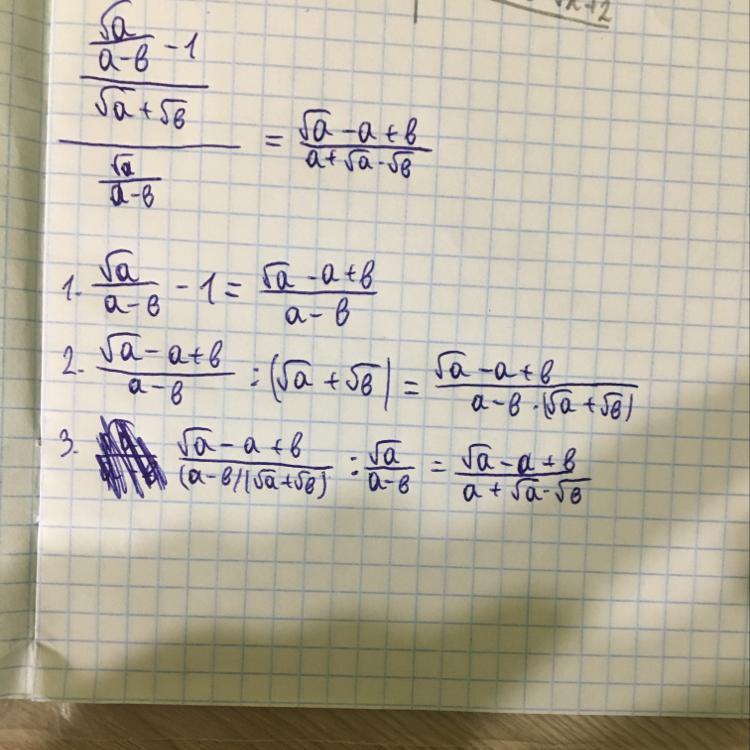 √x+2
((√a/(a-в) - 1)/(√a + √в))/(√a/(a-в)) = (√a - a + в)/(a + √a · √в)
1. √a/(a-в) - 1 = (√a - a + в)/(a - в)
2. (√a - a + в)/(a - в) : (√a + √в) = (√a - a + в)/(a - в · (√a + √в))
3. (√a - a + в)/((a-в)(√a+√в)) : √a/(a-в) = (√a - a + в)/(a + √a · √в)